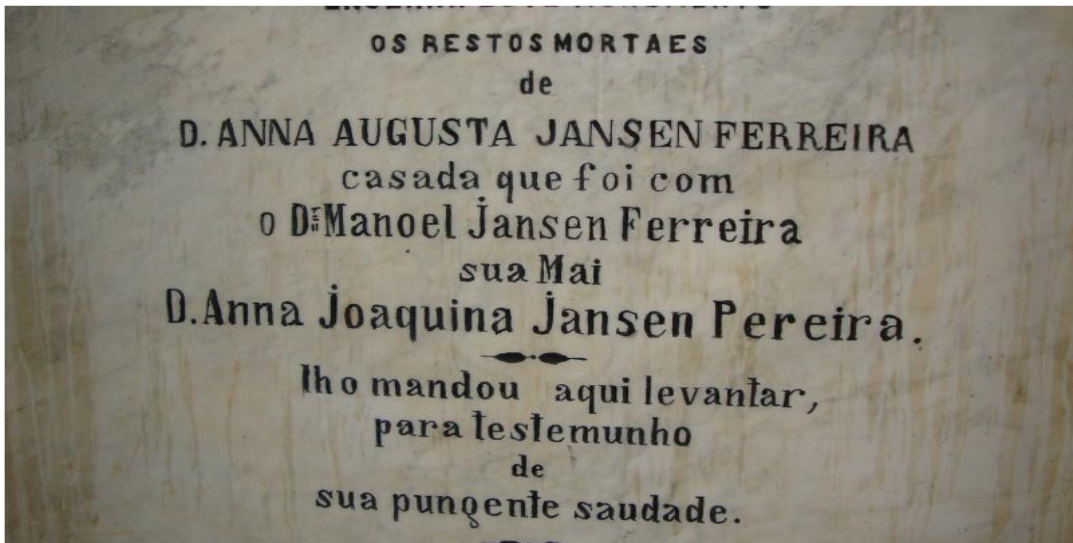 OS RESTOS MORTAES
de
D. ANNA AUGUSTA JANSEN FERREIRA
casada que foi com
o Dr. Manoel Jansen Ferreira
sua Mai
D. Anna Joaquina Jansen Pereira.
lho mandou aqui levantar,
para testemunho
de
sua pungente saudade.